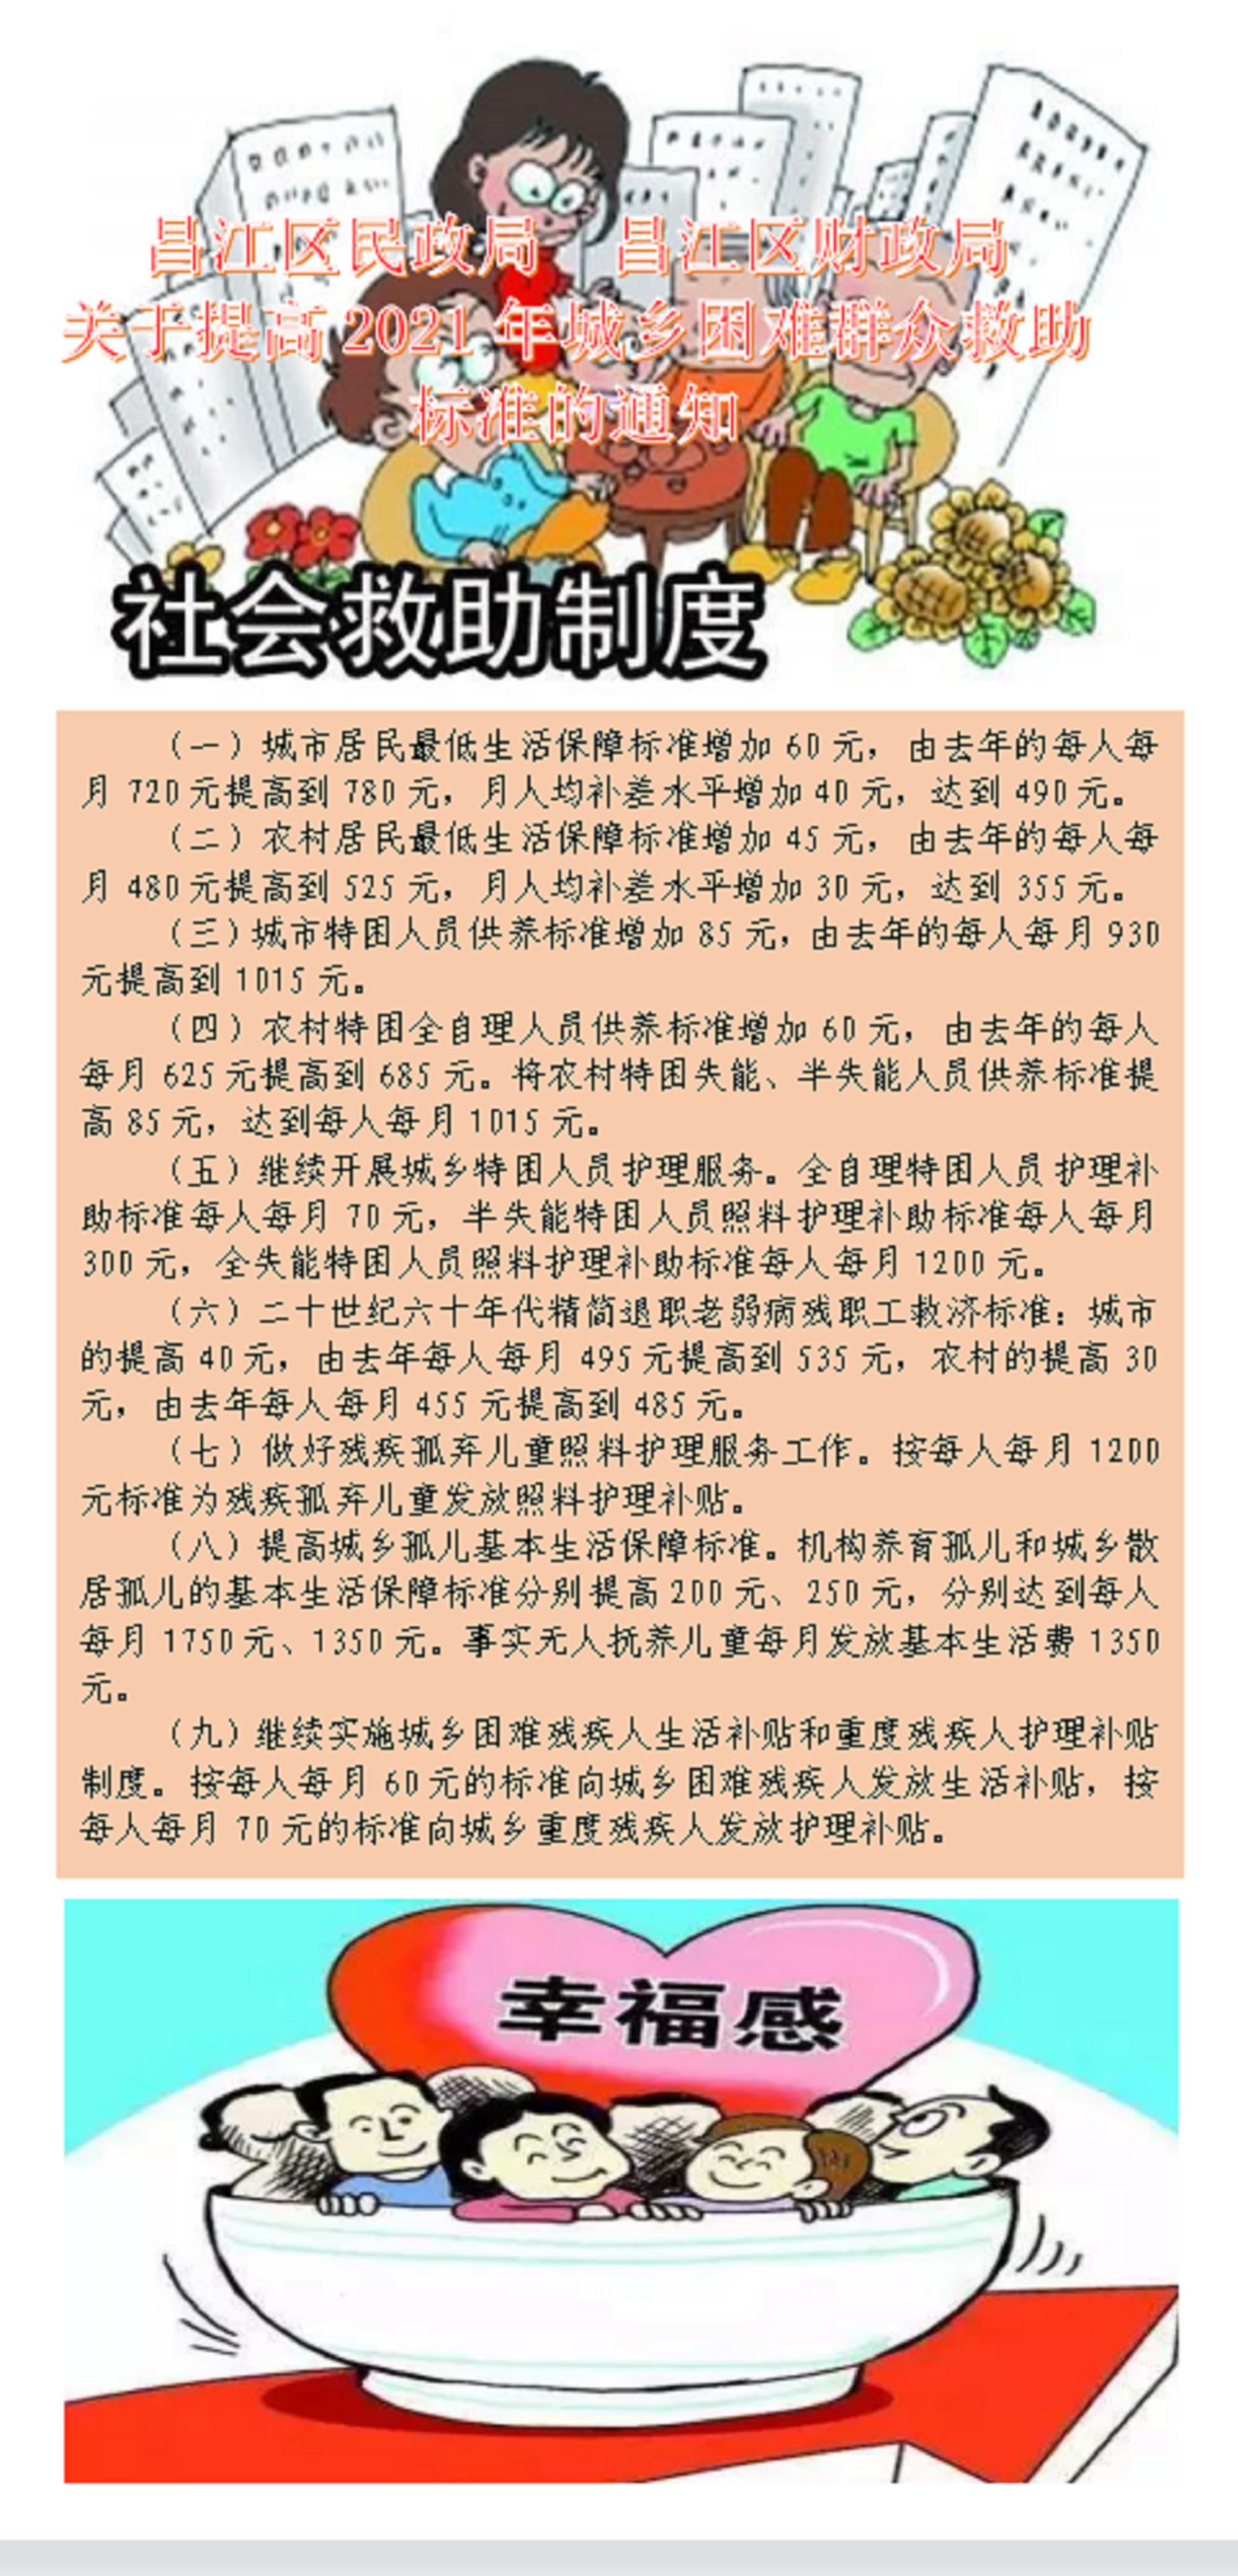 昌江区民政局 昌江区财政局
关于提高 2021 年城乡困难群众救助
标准的通知
社会救助制度
（一）城市居民最低生活保障标准增加 60 元，由去年的每人每
月 720 元提高到 780 元，月人均补差水平增加 40 元，达到 490 元。
（二）农村居民最低生活保障标准增加 45 元，由去年的每人每
月 480 元提高到 525 元，月人均补差水平增加 30 元，达到 355 元。
（三）城市特困人员供养标准增加 85 元，由去年的每人每月 930
元提高到 1015 元。
（四）农村特困全自理人员供养标准增加 60 元，由去年的每人
每月 625 元提高到 685 元。将农村特困失能、半失能人员供养标准提
高 85 元，达到每人每月 1015 元。
（五）继续开展城乡特困人员护理服务。全自理特困人员护理补
助标准每人每月 70 元，半失能特困人员照料护理补助标准每人每月
300 元，全失能特困人员照料护理补助标准每人每月 1200 元。
（六）二十世纪六十年代精简退职老弱病残职工救济标准：城市
的提高 40 元，由去年每人每月 495 元提高到 535 元，农村的提高 30
元，由去年每人每月 455 元提高到 485 元。
（七）做好残疾孤弃儿童照料护理服务工作。按每人每月 1200
元标准为残疾孤弃儿童发放照料护理补贴。
（八）提高城乡孤儿基本生活保障标准。机构养育孤儿和城乡散
居孤儿的基本生活保障标准分别提高 200 元、250 元，分别达到每人
每月 1750 元、1350 元。事实无人抚养儿童每月发放基本生活费 1350
元。
（九）继续实施城乡困难残疾人生活补贴和重度残疾人护理补贴
制度。按每人每月 60 元的标准向城乡困难残疾人发放生活补贴，按
每人每月 70 元的标准向城乡重度残疾人发放护理补贴。
幸福感